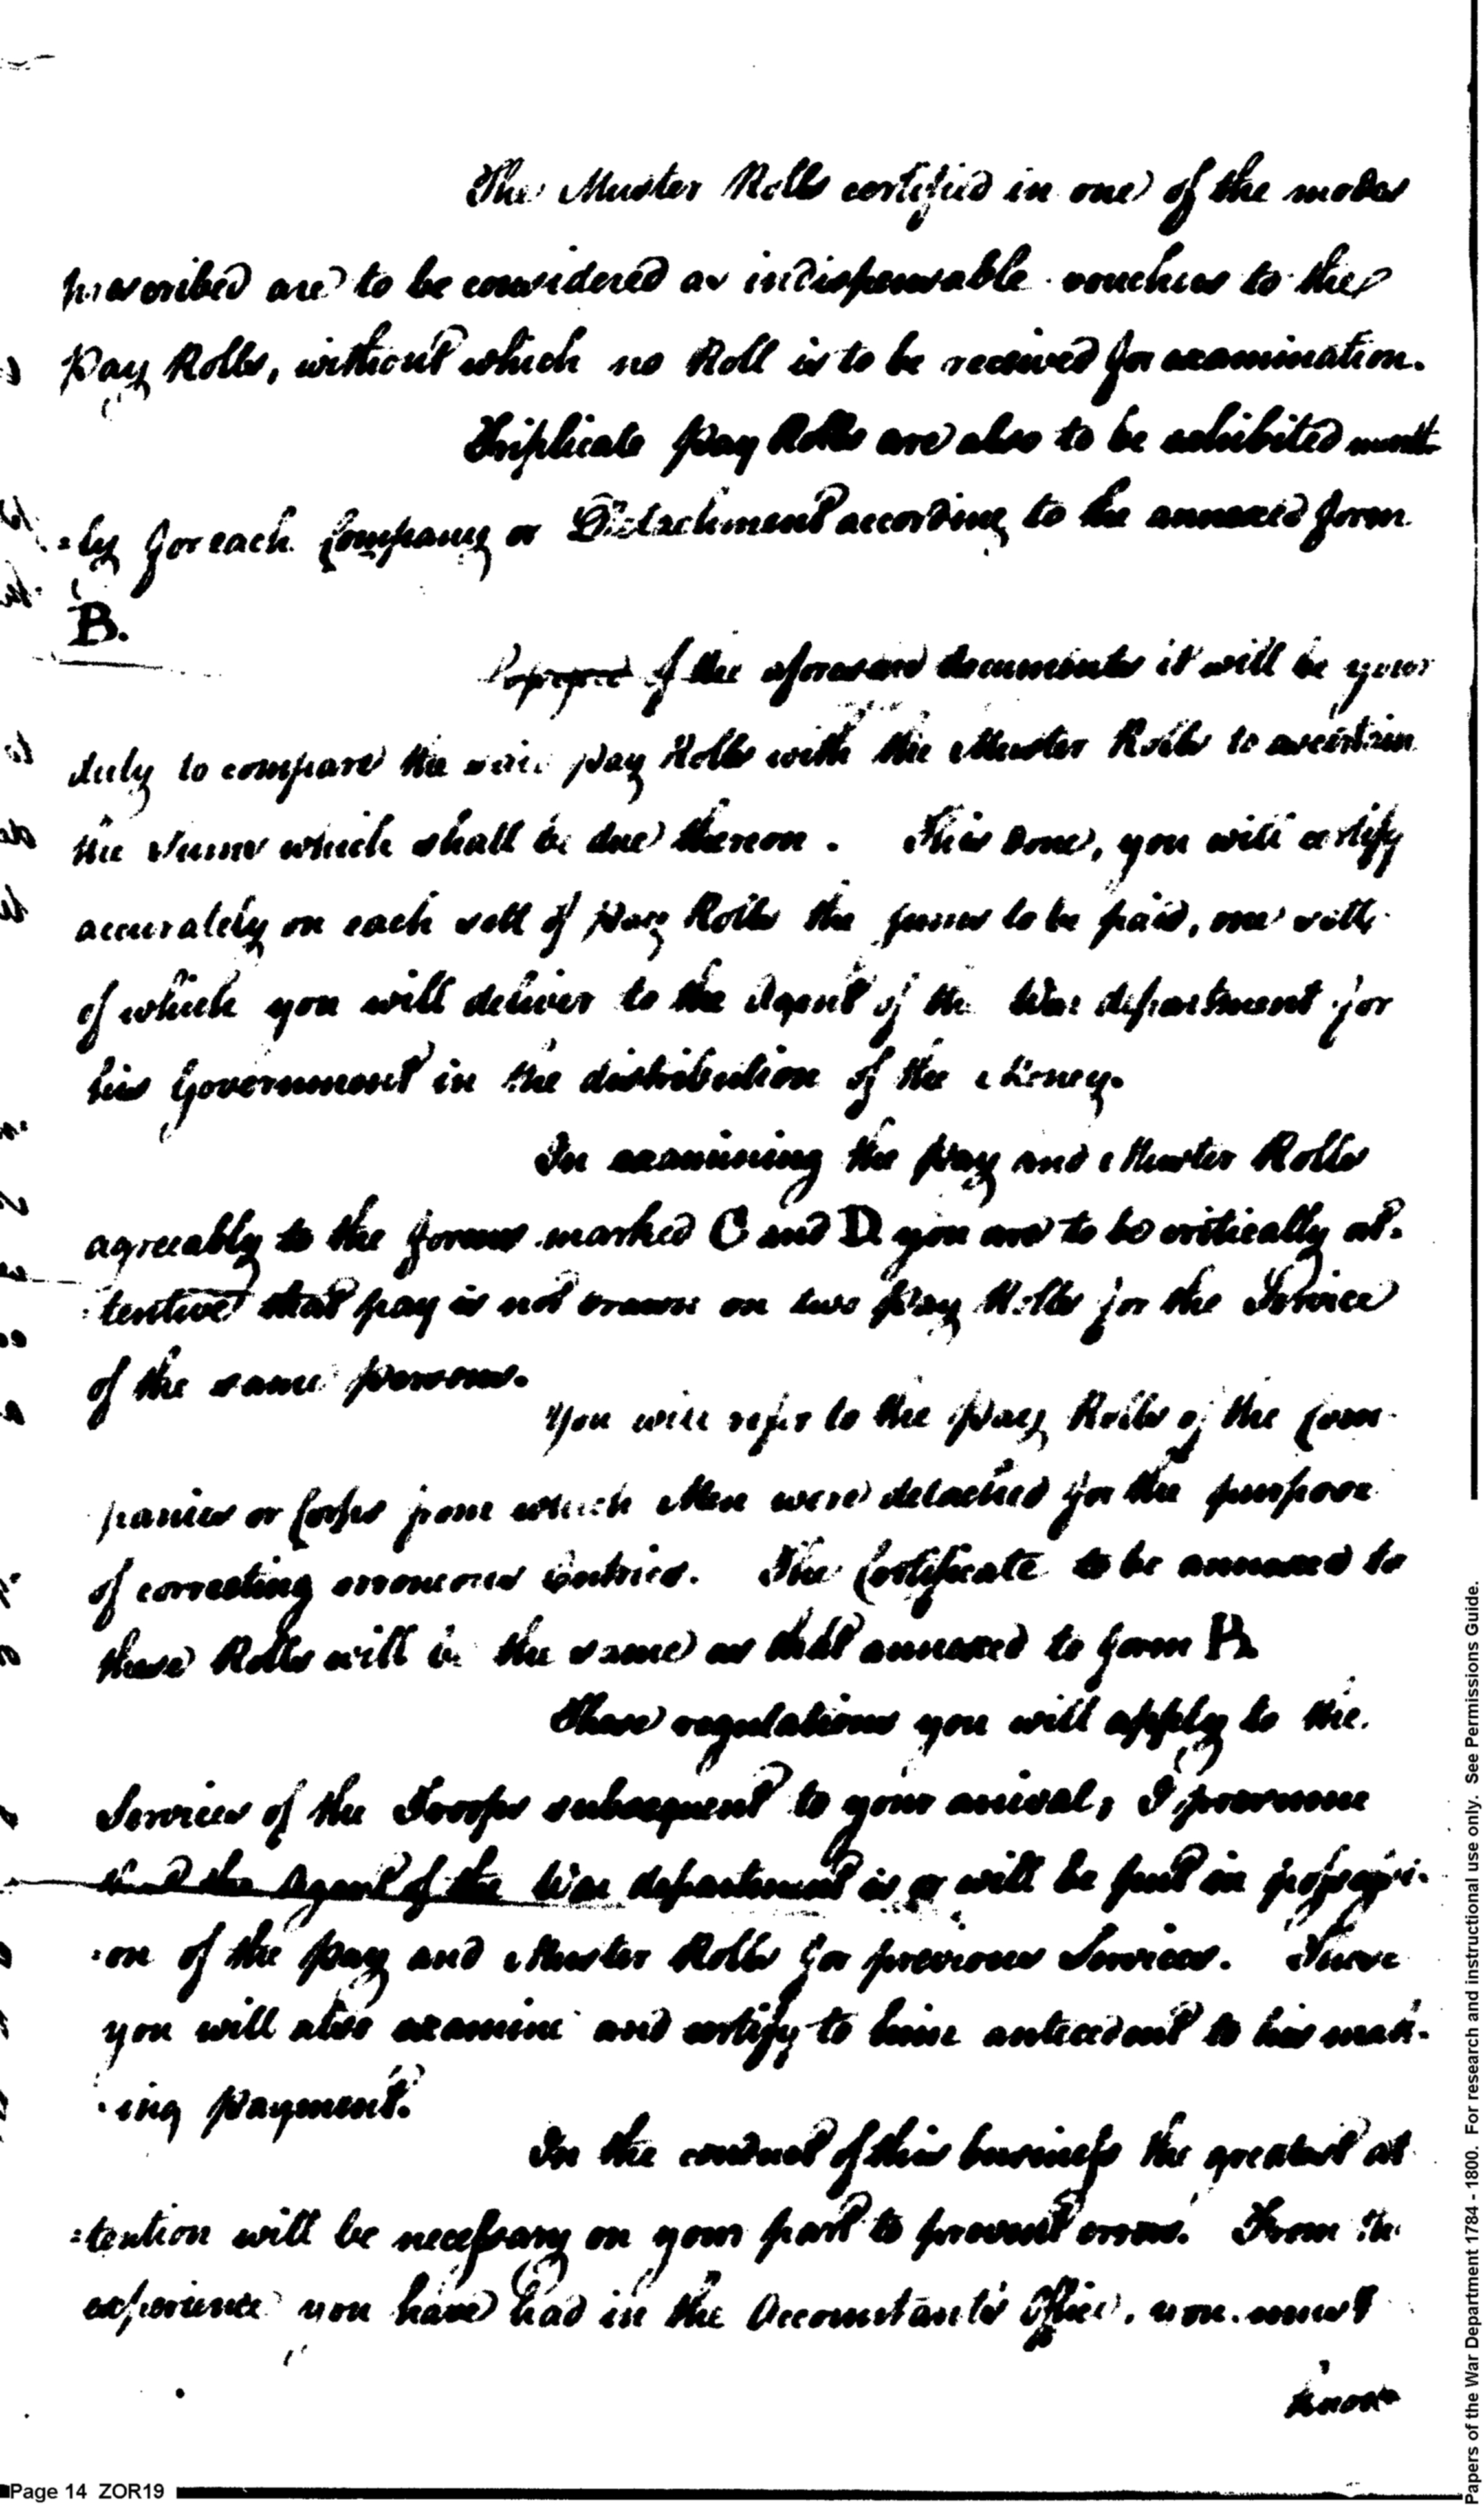 The Muster Rolls certified in one of the modes
prescribed are to be considered as indispensable vouchers to the
Pay Rolls, without which no Roll is to be received for examination.
Triplicate Pay Rolls are also to be exhibited month
=ly for each Company or Detachment according to the annexed form
B.
Possessed of the aforesaid documents it will be your
duty to compare the said Pay Rolls with the Muster Rolls to ascertain
the sums which shall be due thereon. This done, you will certify
accurately on each sett of Pay Rolls the sums to be paid, one sett
of which you will deliver to the Agent of the War department for
his Government in the distribution of the Money.
In examining the Pay and Muster Rolls
agreeably to the forms marked C and D you are to be critically at-
:tentive that pay is not drawn on two Pay Rolls for the Service
of the same persons.
You will refer to the Pay Rolls of the Com-
panies or Corps from which Men were detached for the purpose
of correcting erroneous Entries. The Certificate to be annexed to
these Rolls will be the same as that annexed to form B.
These regulations you will apply to the
Services of the Troops subsequent to your arrival, I presume
that the Agent of the War department is or will be put in possessi-
:on of the Pay and Muster Rolls for previous Services. These
you will also examine and certify to him antecedent to his mak-
:ing payment.
In the conduct of this business the greatest at
:tention will be necessary on your part to prevent errors. From the
experience you have had in the Accountant's Office, you must
know
Page 14 ZOR19
Papers of the War Department 1784 - 1800. For research and instructional use only. See Permissions Guide.